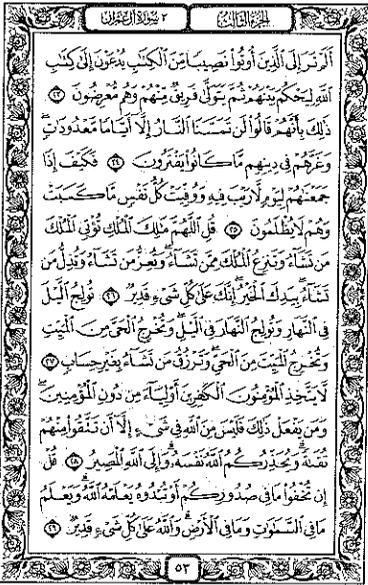 الجزء الثالث ٣ سورة آل عمران
أَلَمْ تَرَ إِلَى الَّذِينَ أُوتُوا نَصِيبًا مِّنَ الْكِتَابِ يُدْعَوْنَ إِلَىٰ كِتَابِ
اللَّهِ لِيَحْكُمَ بَيْنَهُمْ ثُمَّ يَتَوَلَّىٰ فَرِيقٌ مِّنْهُمْ وَهُم مُّعْرِضُونَ ٢٣
ذَٰلِكَ بِأَنَّهُمْ قَالُوا لَن تَمَسَّنَا النَّارُ إِلَّا أَيَّامًا مَّعْدُودَاتٍ
وَغَرَّهُمْ فِي دِينِهِم مَّا كَانُوا يَفْتَرُونَ ٢٤ فَكَيْفَ إِذَا
جَمَعْنَاهُمْ لِيَوْمٍ لَّا رَيْبَ فِيهِ وَوُفِّيَتْ كُلُّ نَفْسٍ مَّا كَسَبَتْ
وَهُمْ لَا يُظْلَمُونَ ٢٥ قُلِ اللَّهُمَّ مَالِكَ الْمُلْكِ تُؤْتِي الْمُلْكَ
مَن تَشَاءُ وَتَنزِعُ الْمُلْكَ مِمَّن تَشَاءُ وَتُعِزُّ مَن تَشَاءُ وَتُذِلُّ مَن
تَشَاءُ بِيَدِكَ الْخَيْرُ إِنَّكَ عَلَىٰ كُلِّ شَيْءٍ قَدِيرٌ ٢٦ تُولِجُ اللَّيْلَ
فِي النَّهَارِ وَتُولِجُ النَّهَارَ فِي اللَّيْلِ وَتُخْرِجُ الْحَيَّ مِنَ الْمَيِّتِ
وَتُخْرِجُ الْمَيِّتَ مِنَ الْحَيِّ وَتَرْزُقُ مَن تَشَاءُ بِغَيْرِ حِسَابٍ ٢٧
لَّا يَتَّخِذِ الْمُؤْمِنُونَ الْكَافِرِينَ أَوْلِيَاءَ مِن دُونِ الْمُؤْمِنِينَ
وَمَن يَفْعَلْ ذَٰلِكَ فَلَيْسَ مِنَ اللَّهِ فِي شَيْءٍ إِلَّا أَن تَتَّقُوا مِنْهُمْ
تُقَاةً وَيُحَذِّرُكُمُ اللَّهُ نَفْسَهُ وَإِلَى اللَّهِ الْمَصِيرُ ٢٨ قُلْ
إِن تُخْفُوا مَا فِي صُدُورِكُمْ أَوْ تُبْدُوهُ يَعْلَمْهُ اللَّهُ وَيَعْلَمُ
مَا فِي السَّمَاوَاتِ وَمَا فِي الْأَرْضِ وَاللَّهُ عَلَىٰ كُلِّ شَيْءٍ قَدِيرٌ ٢٩
٥٣